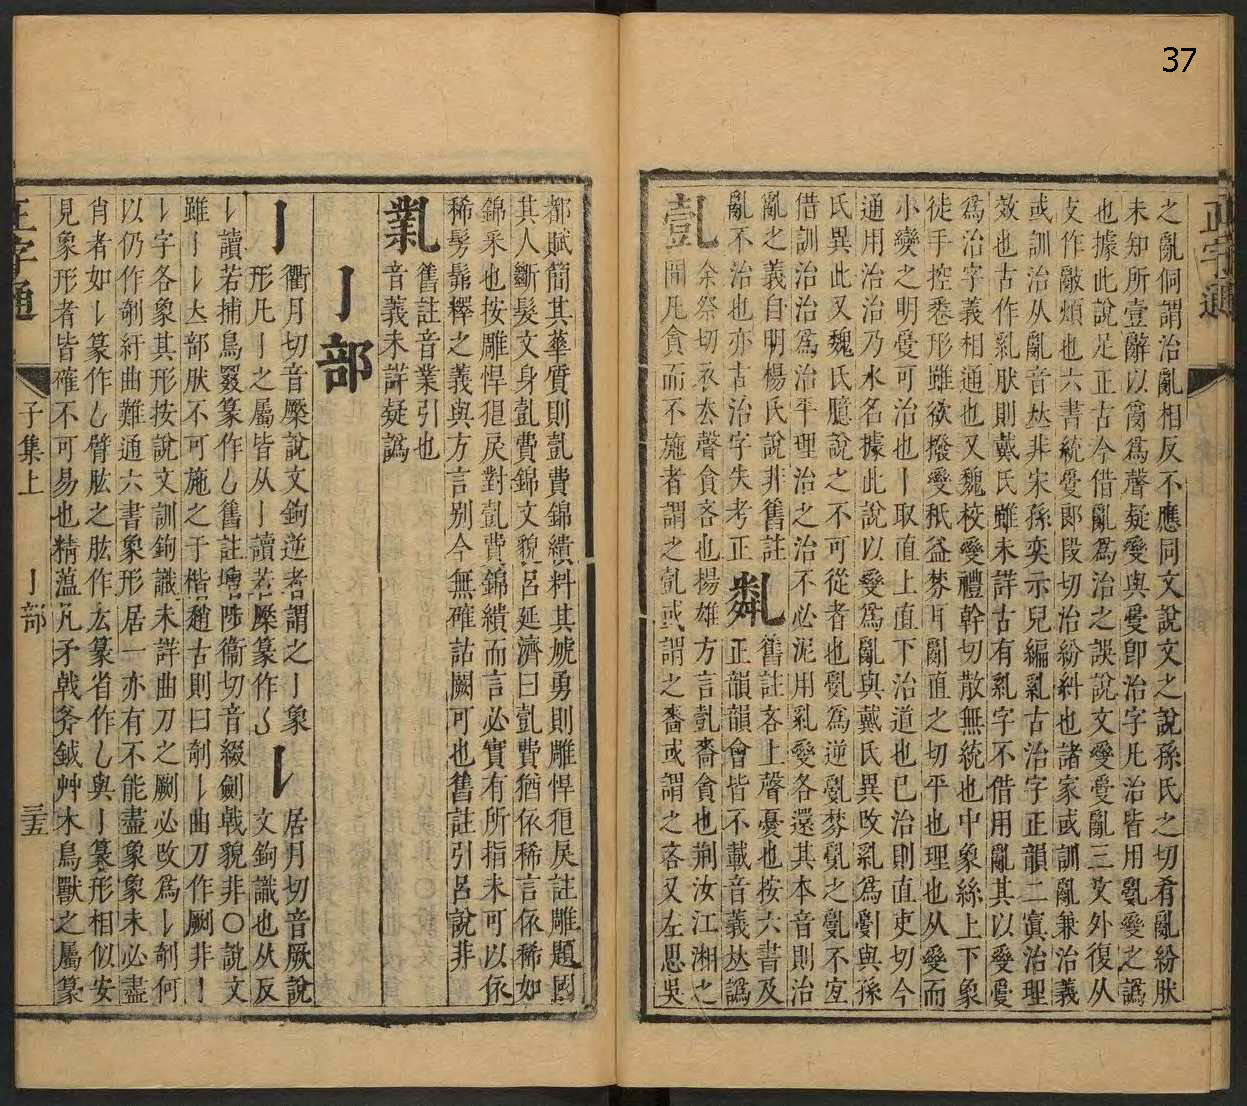 37
正字通
之亂侗謂治亂相反不應同文說文之說孫氏之切肴亂紛肰
未知所壹辭以𤔔爲聲疑𤔔與𤔔卽治字凡治皆用亂𤔔之譌
也據此說足正古今借亂爲治之誤說文𤔔𤔔亂三文外復从
攴作敽煩也六書統𤔔郎段切治紛糾也諸家或訓亂兼治義
或訓治从亂音𠀤非宋孫奕示兒編乿古治字正韻二寘治理
效也古作乿肰則戴氏雖未詳古有乿字不借用亂其以𤔔𤔔
爲治字義相通也又魏校𤔔禮幹切散無統也中象絲上下象
徒手控惎形雖欲撥𤔔秖益棼冃𠜂值之切平也理也从𤔔而
小變之明𤔔可治也亅取直上直下治道也已治則直吏切今
通用治治乃水名據此說以𤔔爲亂與戴氏異攺乿爲𠜂與孫
氏異此又魏氏臆說之不可從者也亂爲逆亂棼亂之亂不宜
借訓治治爲治平理治之治不必泥用乿𤔔各還其本音則治
亂之義自明楊氏說非舊註
亂不治也亦古治字失考正
亃 舊註吝上聲憂也按六書及
正韻韻會皆不載音義𠀤譌
亄 余祭切衣去聲貪吝也揚雄方言亄嗇貪也荆汝江湘之
閒凡貪而不施者謂之亄或謂之嗇或謂之吝又左思吳
都賦簡其華質則亄費錦繢料其虓勇則鵰悍狼戾註雕題國
其人斷髮文身亄費錦文貌呂延濟曰亄費猶依稀言依稀如
錦釆也按雕悍狼戾對亄費錦繢而言必實有所指未可以依
稀髣髴釋之義與方言别今無確詁闕可也舊註引呂說非
㲸 舊註音業引也
音義未詳疑譌
亅部
亅 衢月切音橜說文鉤逆者謂之亅象
形凡亅之屬皆从亅讀若橜篆作𠄌
𠄌 居月切音厥說
文鉤識也从反
亅讀若捕鳥罬篆作乚舊註㙻陟衞切音綴劍戟貌非○說文
雖亅𠄌𠀤部肰不可施之于楷趙古則曰剞𠄌曲刀作劂非亅
𠄌字各象其形按說文訓鉤識未詳曲刀之劂必攺爲𠄌剞何
以仍作剞紆曲難通六書象形居一亦有不能盡象象未必盡
肖者如𠄌篆作乚臂肱之肱作厷篆省作乚與亅篆形相似安
見象形者皆確不可易也精蘊凡矛戟斧鉞艸木鳥獸之屬篆
正字通
子集上
亅部
三五